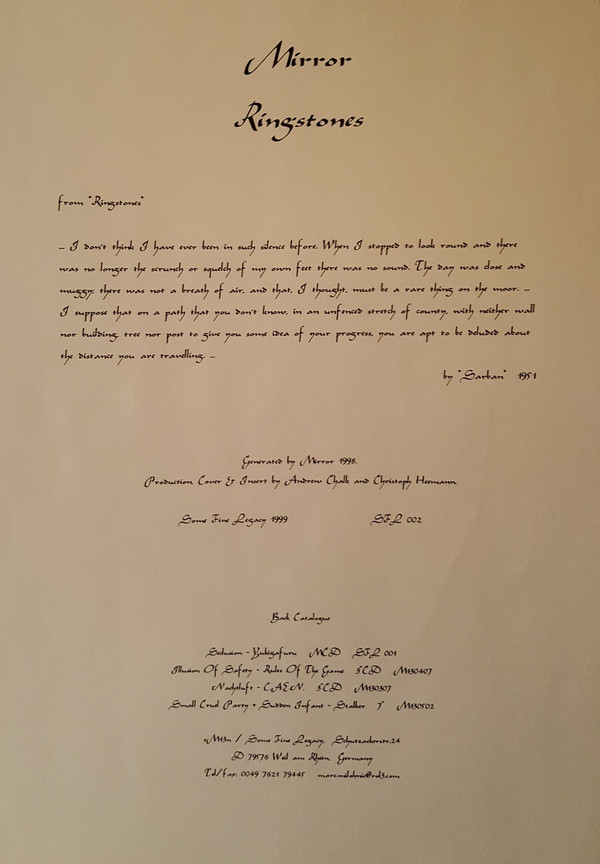 Mirror
Ringstones
from "Ringstones"
... I don't think I have ever been in such silence before. When I stopped to look round and there
was no longer the scrunch or squelch of my own feet there was no sound. The day was close and
muggy; there was not a breath of air, and that, I thought, must be a rare thing on the moor. ...
I suppose that on a path that you don't know, in an unfenced stretch of county, with neither wall
nor building, tree nor post to give you some idea of your progress, you are apt to be deluded about
the distance you are travelling. ...
by "Sarban" 1951
Generated by Mirror 1998.
Production Cover & Insert by Andrew Chalk and Christoph Heemann
Some Fine Legacy 1999 SFL 002
Back Catalogue
Seclusion - Yukigafuru MCD SFL 001
Illusion Of Safety - Rules Of The Game 5CD
Nachtluft - C.A.E.N. 5CD
Small Cruel Party + Sudden Infant - Stalker 7"
/ Some Fine Legacy, 24
D 79576 Weil am Rhein Germany
Tel/fax: 0049 7621 79445